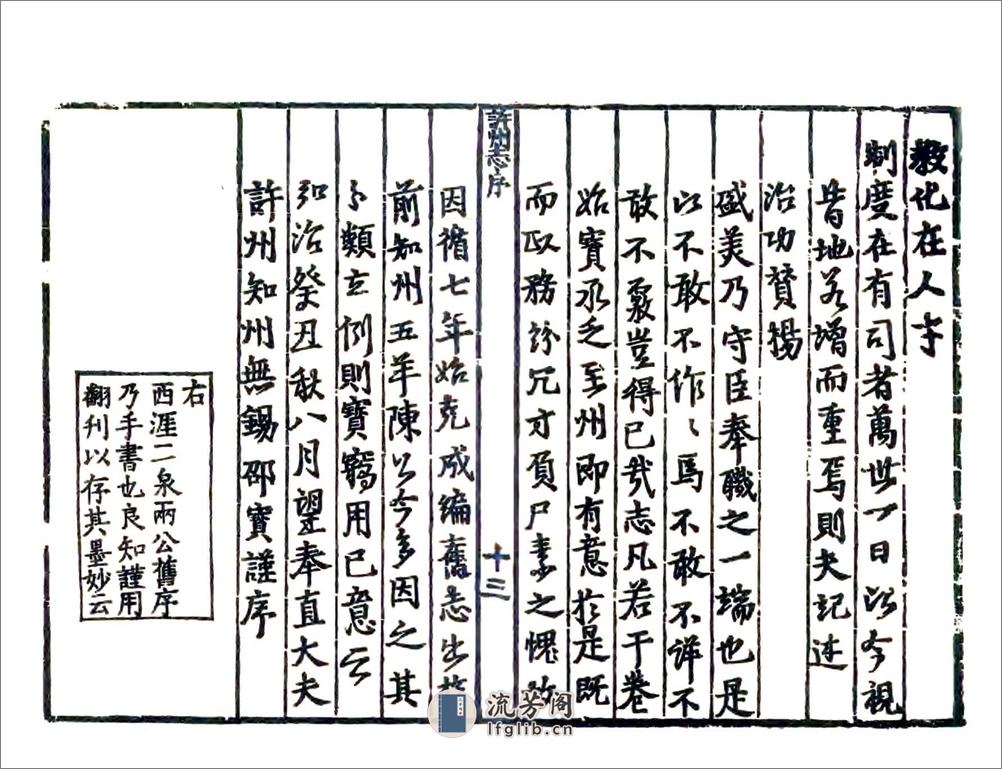 教化在人才
制度在有司者萬世一日以今視
昔地若增而重焉則夫記述
治功贊揚
盛美乃守臣奉職之一端也是
以不敢不作〻焉不敢不詳不
敢不覈豈得已哉志凡若干卷
始寶承乏至州即有意於是既
而政務紛冗才頁尸素之愧故
許州志序
十三
因循七年始克成編舊志出
前知州五羊陳公今多因之其
分類立例則寶竊用己意云
弘治癸丑秋八月望奉直大夫
許州知州無錫邵寶謹序
右
西涯二泉兩公舊序
乃手書也良知謹用
翻刊以存其墨妙云
流芳阁
lfglib.cn